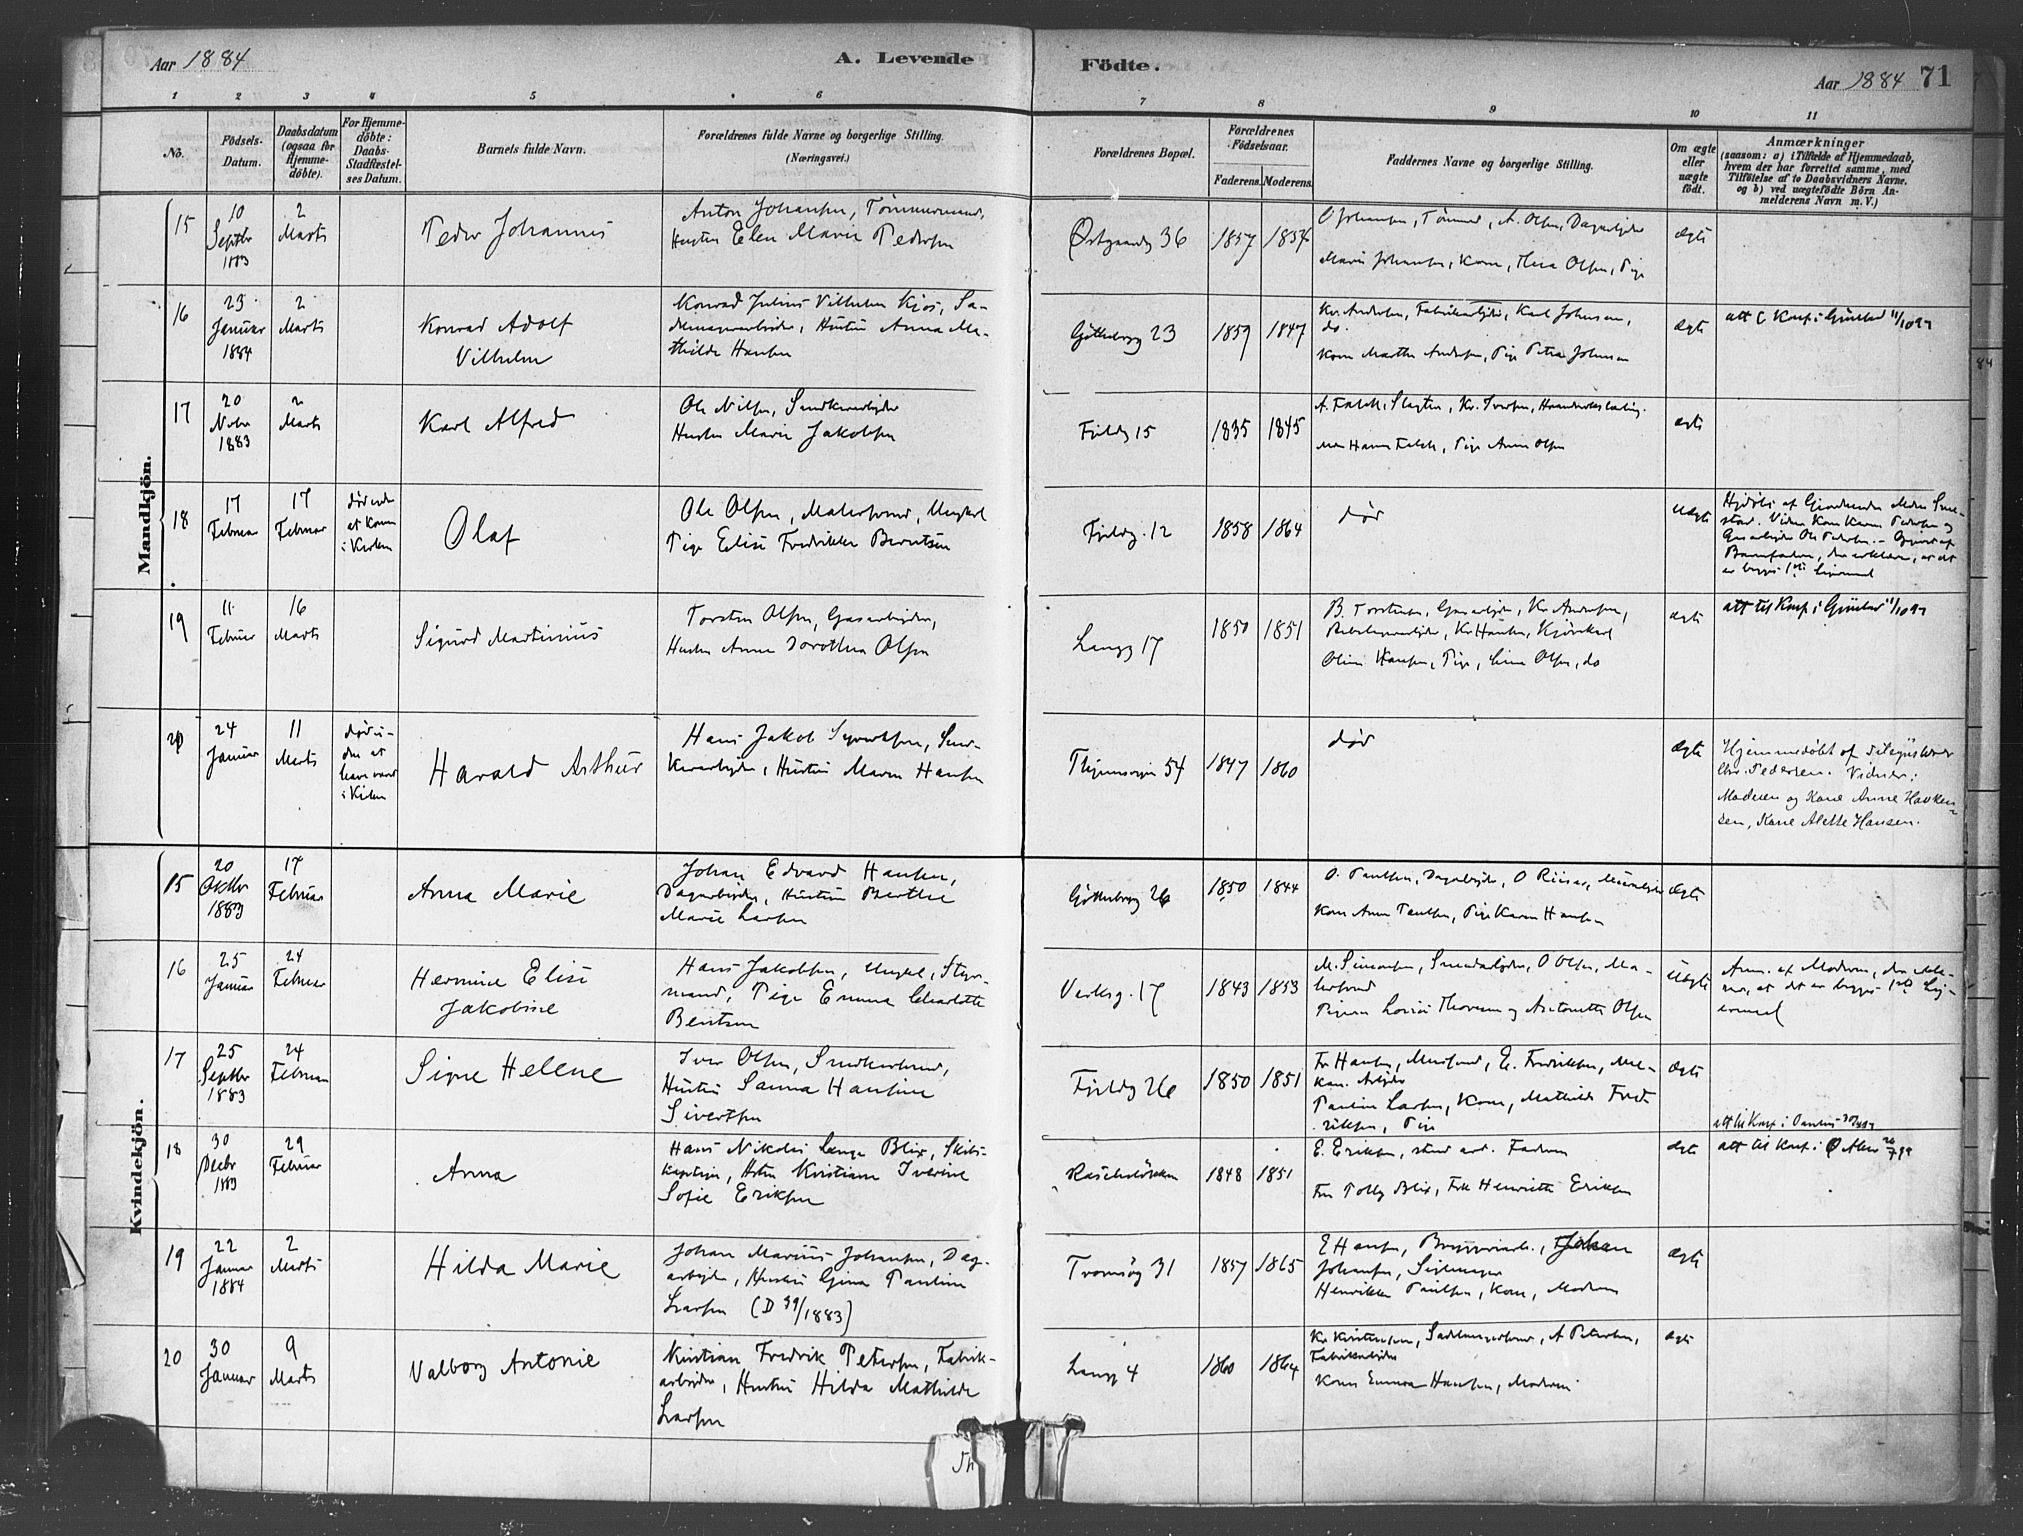 Aar 1884
A. Levende
Födte.
Aar 1884 71
1 2 3 4 5 6 7 8 9 10 11
No.
Födsels-
Datum.
Daabsdatum
(ogsaa for
Hjemme-
döbte).
For Hjemme-
döbte:
Daabs-
Stadfæstel-
ses Datum.
Barnets fulde Navn.
Forældrenes fulde Navne og borgerlige Stilling.
(Næringsvei.)
Forældrenes Bopæl.
Forældrenes
Födselsaar.
Faderens. Moderens.
Faddernes Navne og borgerlige Stilling.
Om ægte
eller
uægte
födt.
Anmærkninger
(saasom: a) i Tilfælde af Hjemmedaab,
hvem der har forrettet samme, med
Tilföielse af to Daabsvidners Navne,
og b) ved uægtefödte Börn An-
melderens Navn m. V.)
Mandkjön.
15
10
Septbr
1883
2
Marts
Peder Johannes
Anton Johansen, Tømmermand,
Hustru Elen Marie Pedersen
Østgaardsg 36
1857 1854
O Johansen, Tømmerm, A. Olsen, Dagarbejder
Marie Johansen, Kone, Thea Olsen, Pige
Ægte
16
23
Januar
1884
2
Marts
Konrad Adolf
Vilhelm
Konrad Julius Vilhelm Kjos, Sa-
delmagerarbejder, Hustru Anna Ma-
thilde Hansen
Gøtteborgg 23
1859 1847
Kr. Andersen, Fabrikarbejder, Karl Johnsen,
do.
Kone Marthe Andersen, Pige Petra Johnsen
Ægte
att t Konf. i Grünerl 11/10 97
17
20
Nvbr
1883
2
Marts
Karl Alfred
Ole Nilsen, Snedkerarbejder
Hustru Marie Jakobsen
Fjeldg 15
1835 1845
A. Falck, Slagter, Kr. Iversen, Haandverkslærling
Hanna Falck, Pige Anna Olsen
Ægte
18
17
Februar
17
Februar
død inden
at komme
i Kirken
Olaf
Ole Olsen, Malersvend, Ungkarl
Pige Elise Fredrikke Berntsen
Fjeldg. 12
1858 1864
død
Uægte
Hjdøbt af Gjordemoder
Vidner Kone Karen Pedersen og
Gasarbejder Ole Pedersen.
Barnefaderen, der erklærer, at det
er begges 1ste Lejermaal
19
11
Februar
16
Marts
Sigurd Martinius
Torsten Olsen, Gasarbejder,
Hustru Anne Dorothea Olsen
Langg 17
1850 1851
B. Torstensen, Gasarbejder, Kr Andersen,
Kr Hansen, Kjørekarl
Oline Hansen, Pige, Olsen, do
Ægte
att til Konf i Grünerl 11/10 97
20
24
Januar
11
Marts
død u-
den at
have været
i Kirken
Harald Arthur
Hans Jakob Syvertsen, Sned-
kerarbejder, Hustru Maren Hansen
54
1847 1860
død
Ægte
Hjemmedøbt af
Chr. Pedersen. Vidner:
Moderen og Kone Anne Haaken-
sen, Kone Alette Hansen.
Kvindekjön.
15
20
Oktbr
1883
17
Februar
Anna Marie
Johan Edvard Hansen,
Dagarbejder, Hustru Berthe
Marie Larsen
Gøtteborgg 26
1850 1844
O. Paulsen, Dagarbejder, O Riise,
Kone Anne Paulsen, Pige Karen Hansen
Ægte
16
25
Januar
24
Februar
Hermine Elise
Jakobine
Hans Jakobsen, Ungkl, Styr-
mand, Pige Emma Charlotte
Berntsen
Verksg. 17
1843 1853
M. Simonsen, Smedarbejder, O Olsen, Ma-
lersvend
Pigerne Lovise Thoresen og Antonette Olsen
Uægte
Anm. af Moderen, der erklæ-
rer, at det er begges 1ste Lej-
ermaal
17
25
Septbr
1883
24
Februar
Signe Helene
Iver Olsen, Snedkersvend,
Hustru Sanna Hansine
Sivertsen
Fjeldg 26
1850 1851
Fr Hansen, Mursvend, E. Fredriksen, Me-
kan. Arbejder
Pauline Larsen, Kone, Mathilde Fred-
riksen, Pige
Ægte
att til Konf i Paulus
18
30
Decbr
1883
29
Februar
Anna
Hans Nikolai Lange Blix, Skibs-
kaptejn, Hstru Kristiane Iverine
Sofie Eriksen
Rascheløkken
1848 1851
E. Eriksen, stud art. Faderen
Fru Tolly Blix, Frk Henriette Eriksen
Ægte
att til Konf i Ø Aker
19
22
Januar
1884
2
Marts
Hilda Marie
Johan Marius Johansen, Dag-
arbejder, Hustru Gina Pauline
Larsen (D 39/1883)
Tromsøg 31
1857 1865
E Hansen, Bryggeriarb., Johan
Johansen, Sejlmager
Henrikke Paulsen, Kone, Moderen
Ægte
20
30
Januar
9
Marts
Valborg Antonie
Kristian Fredrik Petersen, Fabrik-
arbejder, Hustru Hilda Mathilde
Larsen
Langg 4
1860 1864
Kr Kristensen, Sadelmagersvend, A Petersen,
Fabrikarbejder
Kone Emma Hansen, Moderen
Ægte